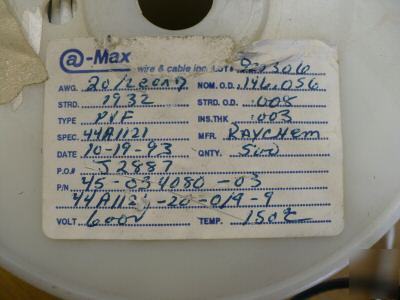 @-Max
wire & cable inc. LOT# 929306
AWG. 20/2cond NOM. O.D. .146.056
STRD. 1932 STRD. O.D. .008
TYPE PVF INS. THK .003
SPEC. 44A1121 MFR. RAYCHEM
DATE 10-19-93 QNTY. 500
P.O.# J2887
P/N 45-034080-03
44A1121-20-0/9-9
VOLT 600V TEMP. 150c